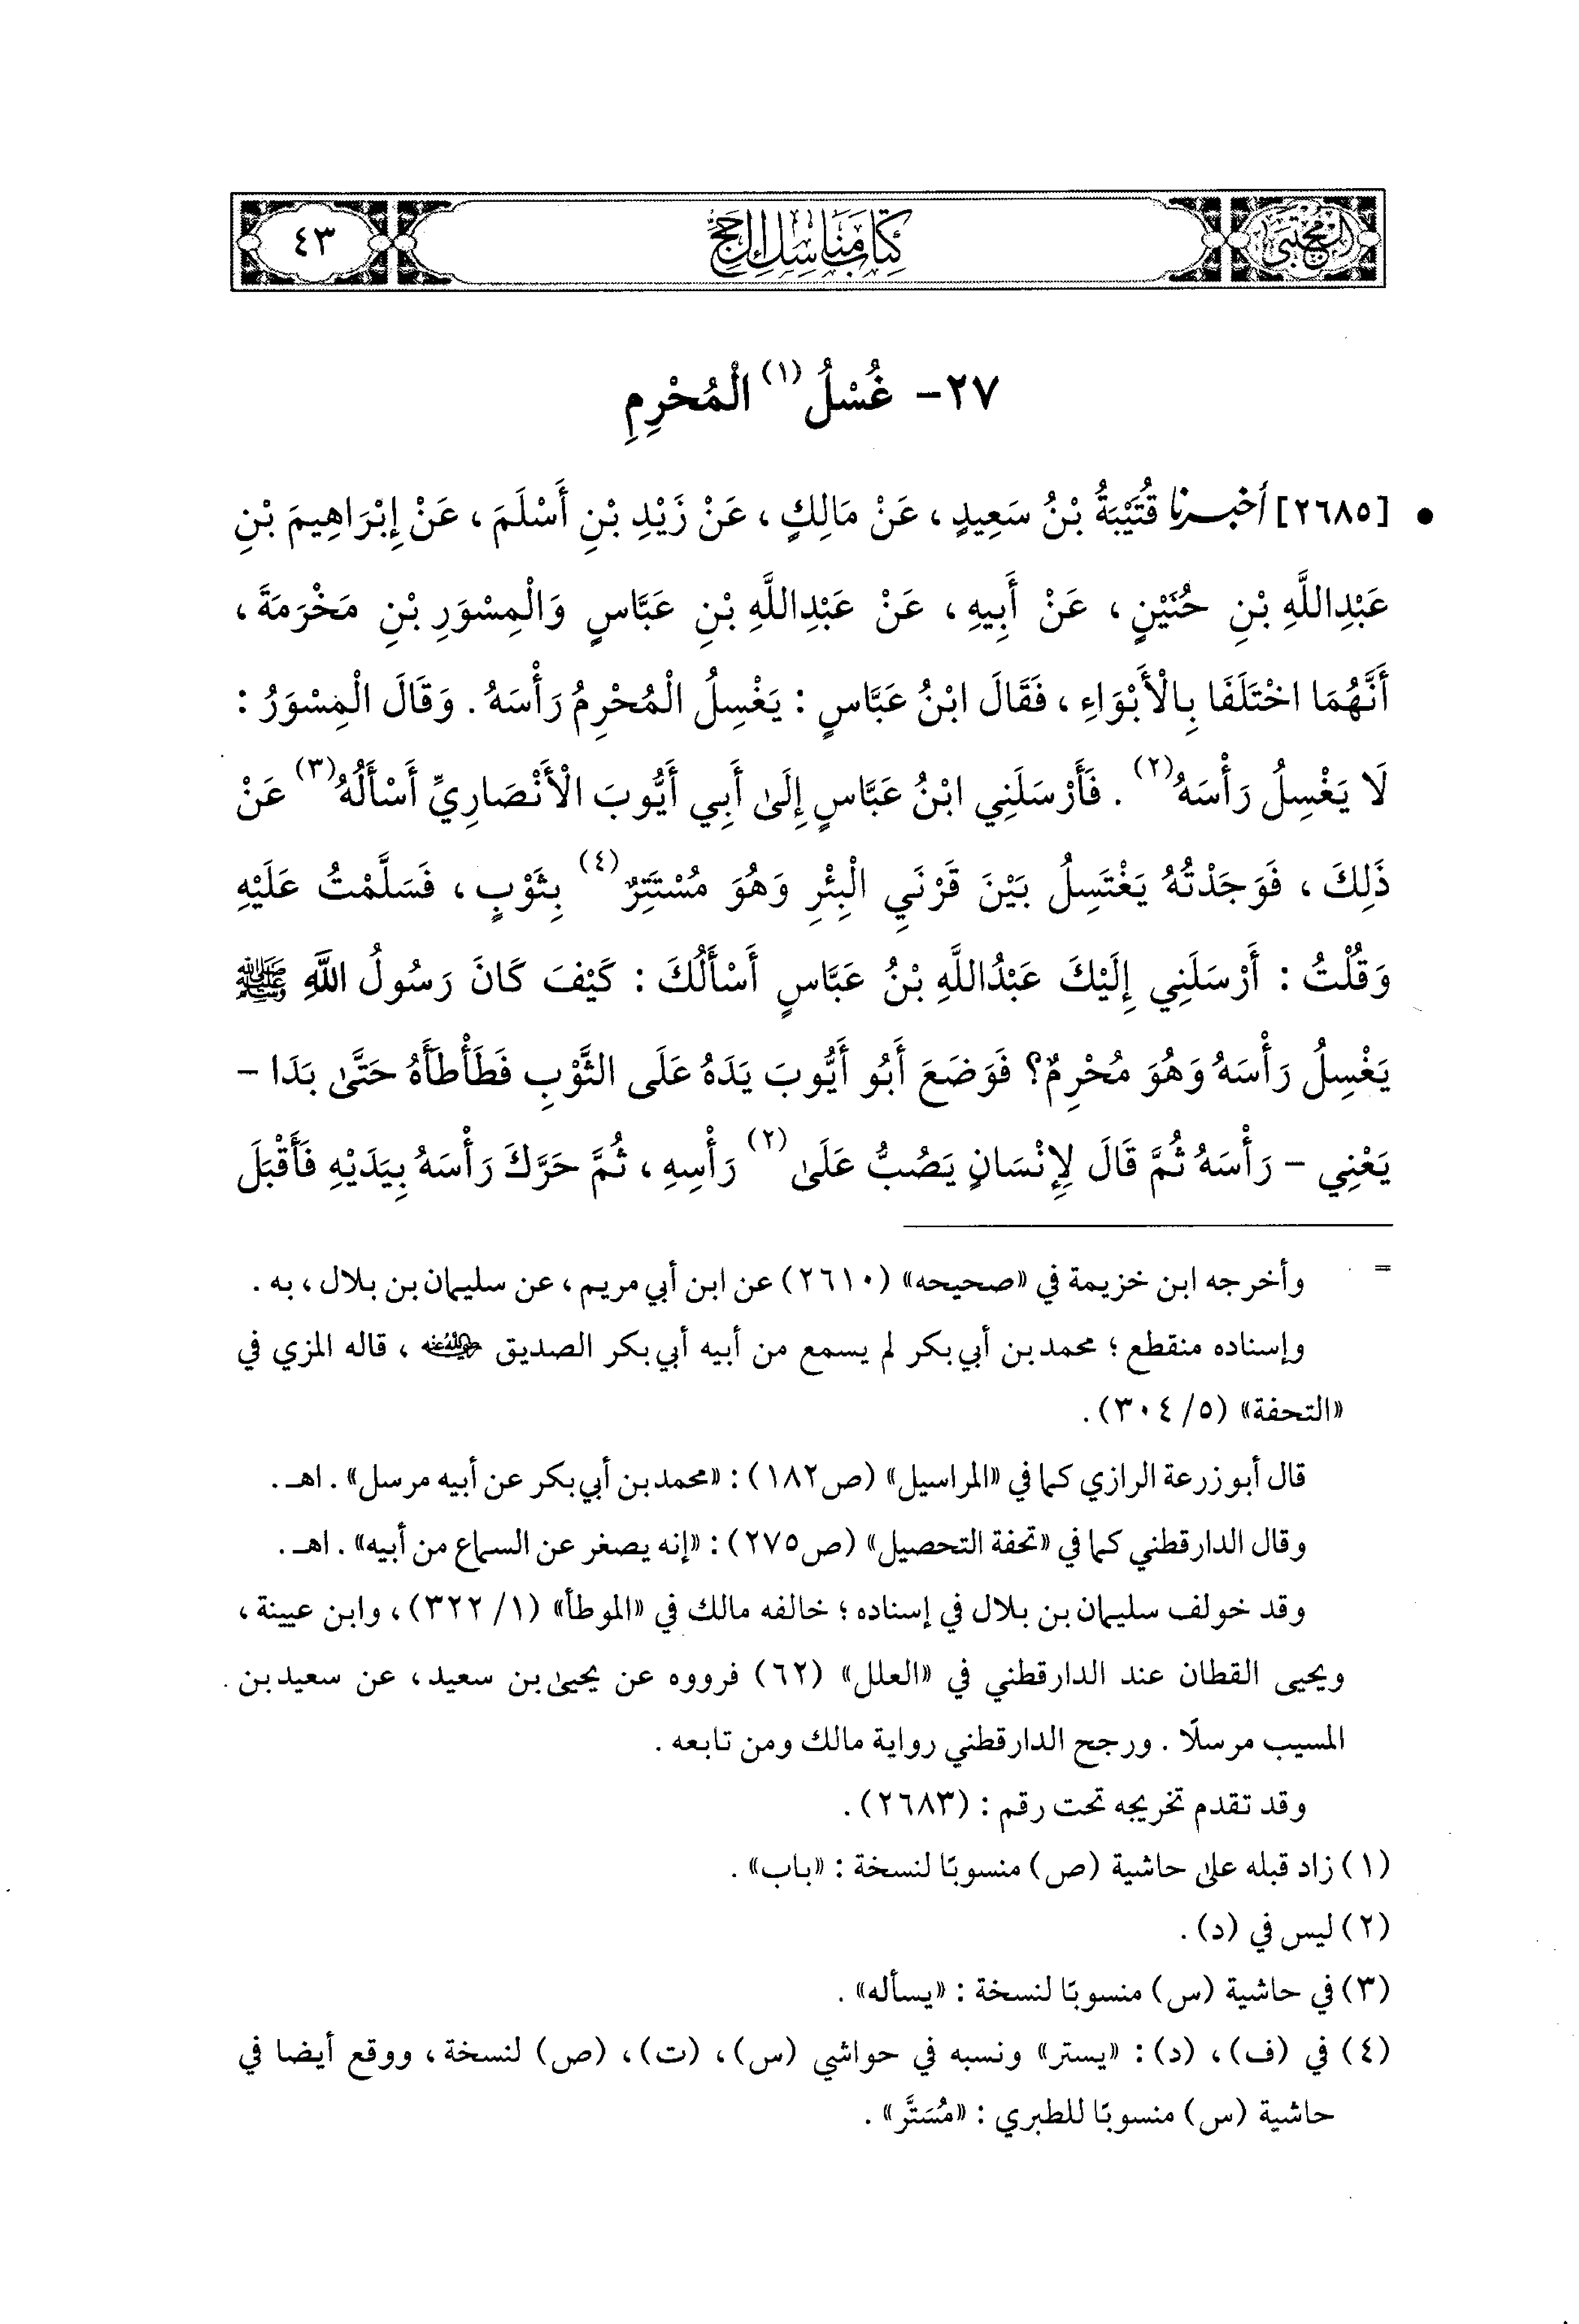 المجتبى
كتاب مناسك الحج
٤٣
٢٧- غُسْلُ (١) الْمُحْرِمِ
• [٢٦٨٥] أخبرنا قُتَيْبَةُ بْنُ سَعِيدٍ، عَنْ مَالِكٍ، عَنْ زَيْدِ بْنِ أَسْلَمَ، عَنْ إِبْرَاهِيمَ بْنِ
عَبْدِاللَّهِ بْنِ حُنَيْنٍ، عَنْ أَبِيهِ، عَنْ عَبْدِاللَّهِ بْنِ عَبَّاسٍ وَالْمِسْوَرِ بْنِ مَخْرَمَةَ،
أَنَّهُمَا اخْتَلَفَا بِالْأَبْوَاءِ، فَقَالَ ابْنُ عَبَّاسٍ: يَغْسِلُ الْمُحْرِمُ رَأْسَهُ. وَقَالَ الْمِسْوَرُ:
لَا يَغْسِلُ رَأْسَهُ(٢). فَأَرْسَلَنِي ابْنُ عَبَّاسٍ إِلَىٰ أَبِي أَيُّوبَ الْأَنْصَارِيِّ أَسْأَلُهُ(٣) عَنْ
ذَلِكَ، فَوَجَدْتُهُ يَغْتَسِلُ بَيْنَ قَرْنَيِ الْبِئْرِ وَهُوَ مُسْتَتِرٌ(٤) بِثَوْبٍ، فَسَلَّمْتُ عَلَيْهِ
وَقُلْتُ: أَرْسَلَنِي إِلَيْكَ عَبْدُاللَّهِ بْنُ عَبَّاسٍ أَسْأَلُكَ: كَيْفَ كَانَ رَسُولُ اللَّهِ ﷺ
يَغْسِلُ رَأْسَهُ وَهُوَ مُحْرِمٌ؟ فَوَضَعَ أَبُو أَيُّوبَ يَدَهُ عَلَى الثَّوْبِ فَطَأْطَأَهُ حَتَّىٰ بَدَا -
يَعْنِي - رَأْسَهُ ثُمَّ قَالَ لِإِنْسَانٍ يَصُبُّ عَلَىٰ(٢) رَأْسِهِ، ثُمَّ حَرَّكَ رَأْسَهُ بِيَدَيْهِ فَأَقْبَلَ
= وأخرجه ابن خزيمة في «صحيحه» (٢٦١٠) عن ابن أبي مريم، عن سليمان بن بلال، به.
وإسناده منقطع؛ محمد بن أبي بكر لم يسمع من أبيه أبي بكر الصديق رضي الله عنه، قاله المزي في
«التحفة» (٥/ ٣٠٤).
قال أبو زرعة الرازي كما في «المراسيل» (ص١٨٢): «محمد بن أبي بكر عن أبيه مرسل». اهـ.
وقال الدارقطني كما في «تحفة التحصيل» (ص٢٧٥): «إنه يصغر عن السماع من أبيه». اهـ.
وقد خولف سليمان بن بلال في إسناده؛ خالفه مالك في «الموطأ» (١/ ٣٢٢)، وابن عيينة،
ويحيى القطان عند الدارقطني في «العلل» (٦٢) فرووه عن يحيى بن سعيد، عن سعيد بن
المسيب مرسلًا. ورجح الدارقطني رواية مالك ومن تابعه.
وقد تقدم تخريجه تحت رقم: (٢٦٨٣).
(١) زاد قبله على حاشية (ص) منسوبًا لنسخة: «باب».
(٢) ليس في (د).
(٣) في حاشية (س) منسوبًا لنسخة: «يسأله».
(٤) في (ف)، (د): «يستر» ونسبه في حواشي (س)، (ت)، (ص) لنسخة، ووقع أيضا في
حاشية (س) منسوبًا للطبري: «مُسَتَّر».